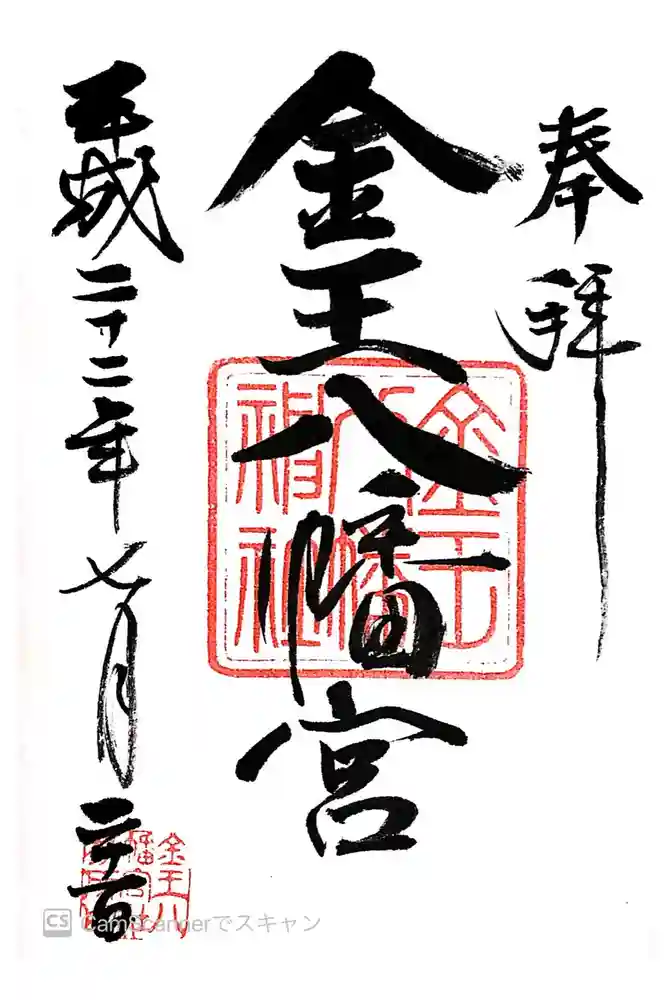 奉拝
金王八幡宮
平成二十二年七月二十一日
金王
八幡
神社
金王八
幡宮社
CS CamScannerでスキャン